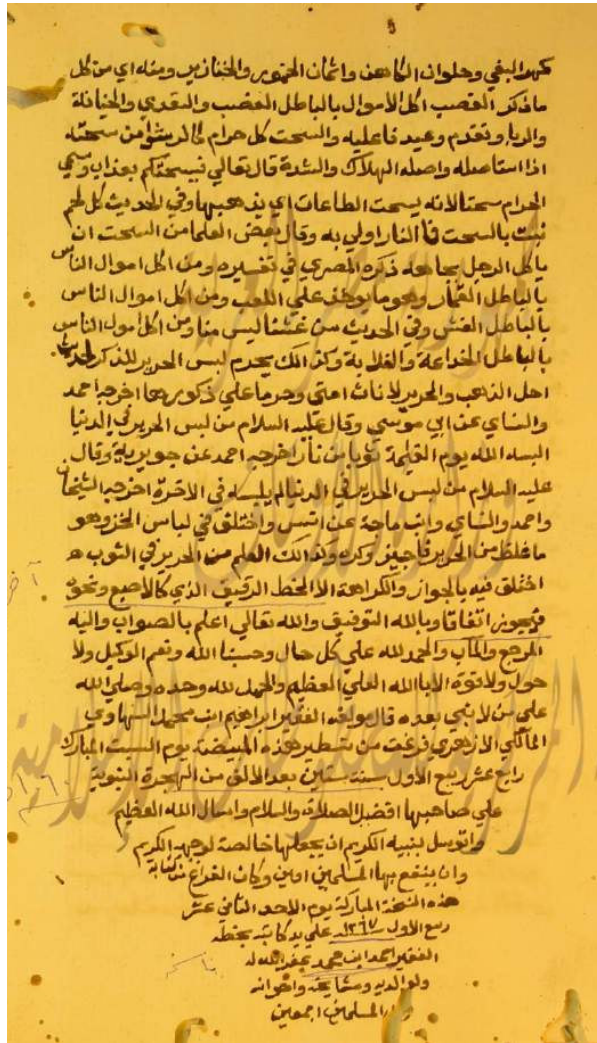 كمهر البغي وحلوان الكاهن واثمان الخمور والخنازير ومنه اي من كل
ما ذكر الغصب اكل الاموال بالباطل الغصب والتعدي والخيانة
والربا وتقدم وعيد فاعليه والسحت كل حرام كالرشوا من سحته
اذا استاصله واصله الهلاك والشدة قال تعالي فيسحتكم بعذاب وسمي
الحرام سحتا لانه يسحت الطاعات اي يذهبها وفي الحديث كل لحم
نبت بالسحت فالنار اولي به وقال بعض العلما من السحت ان
ياكل الرجل بجاهه ذكره المصري في تفسيره ومن اكل اموال الناس
بالباطل القمار وهو ما يوخذ علي اللعب ومن اكل اموال الناس
بالباطل الغش وفي الحديث من غشنا ليس منا ومن اكل امول الناس
بالباطل الخداعة والغلابة وكذالك يحرم لبس الحرير للذكر لحديث
احل الذهب والحرير لاناث امتي وحرما علي ذكورها اخرجه احمد
والنساي عن ابي موسي وقال عليه السلام من لبس الحرير في الدنيا
البسه الله يوم القيمة ثوبا من نار اخرجه احمد عن جويرية وقال
عليه السلام من لبس الحرير في الدنيا لم يلبسه في الاخرة اخرجه الشيخان
واحمد والنساي وابن ماجة عن انس واختلف في لباس الخز وهو
ما غلظ من الحرير فاجيز وكره وكذالك العلم من الحرير في الثوب
اختلف فيه بالجواز والكراهة الا الخط الرقيق الذي كالاصبع ونحوه
فيجوز اتفاقا وبالله التوفيق والله تعالي اعلم بالصواب واليه
المرجع والمآب والحمد لله علي كل حال وحسبنا الله ونعم الوكيل ولا
حول ولا قوة الا بالله العلي العظيم والحمد لله وحده وصلي الله
علي من لا نبي بعده قال مولفه الفقير ابراهيم ابن محمد النهاوي
المالكي الازهري فرغت من تسطير هذه المبيضة يوم السبت المبارك
رابع عشر ربيع الاول سنة ستين بعد الالف من الهجرة النبوية
علي صاحبها افضل الصلاة والسلام واسال الله العظيم
واتوسل بنبيه الكريم ان يجعلها خالصة لوجهه الكريم
وان ينفع بها المسلمين امين وكان الفراغ من كتابة
هذه النسخة المباركة يوم الاحد الثاني عشر
ربيع الاول ١٢٦٧ علي يد كاتبه بخطه
الفقير احمد ابن محمد غفر الله له
ولوالديه ومشايخه واخوانه
المسلمين اجمعين